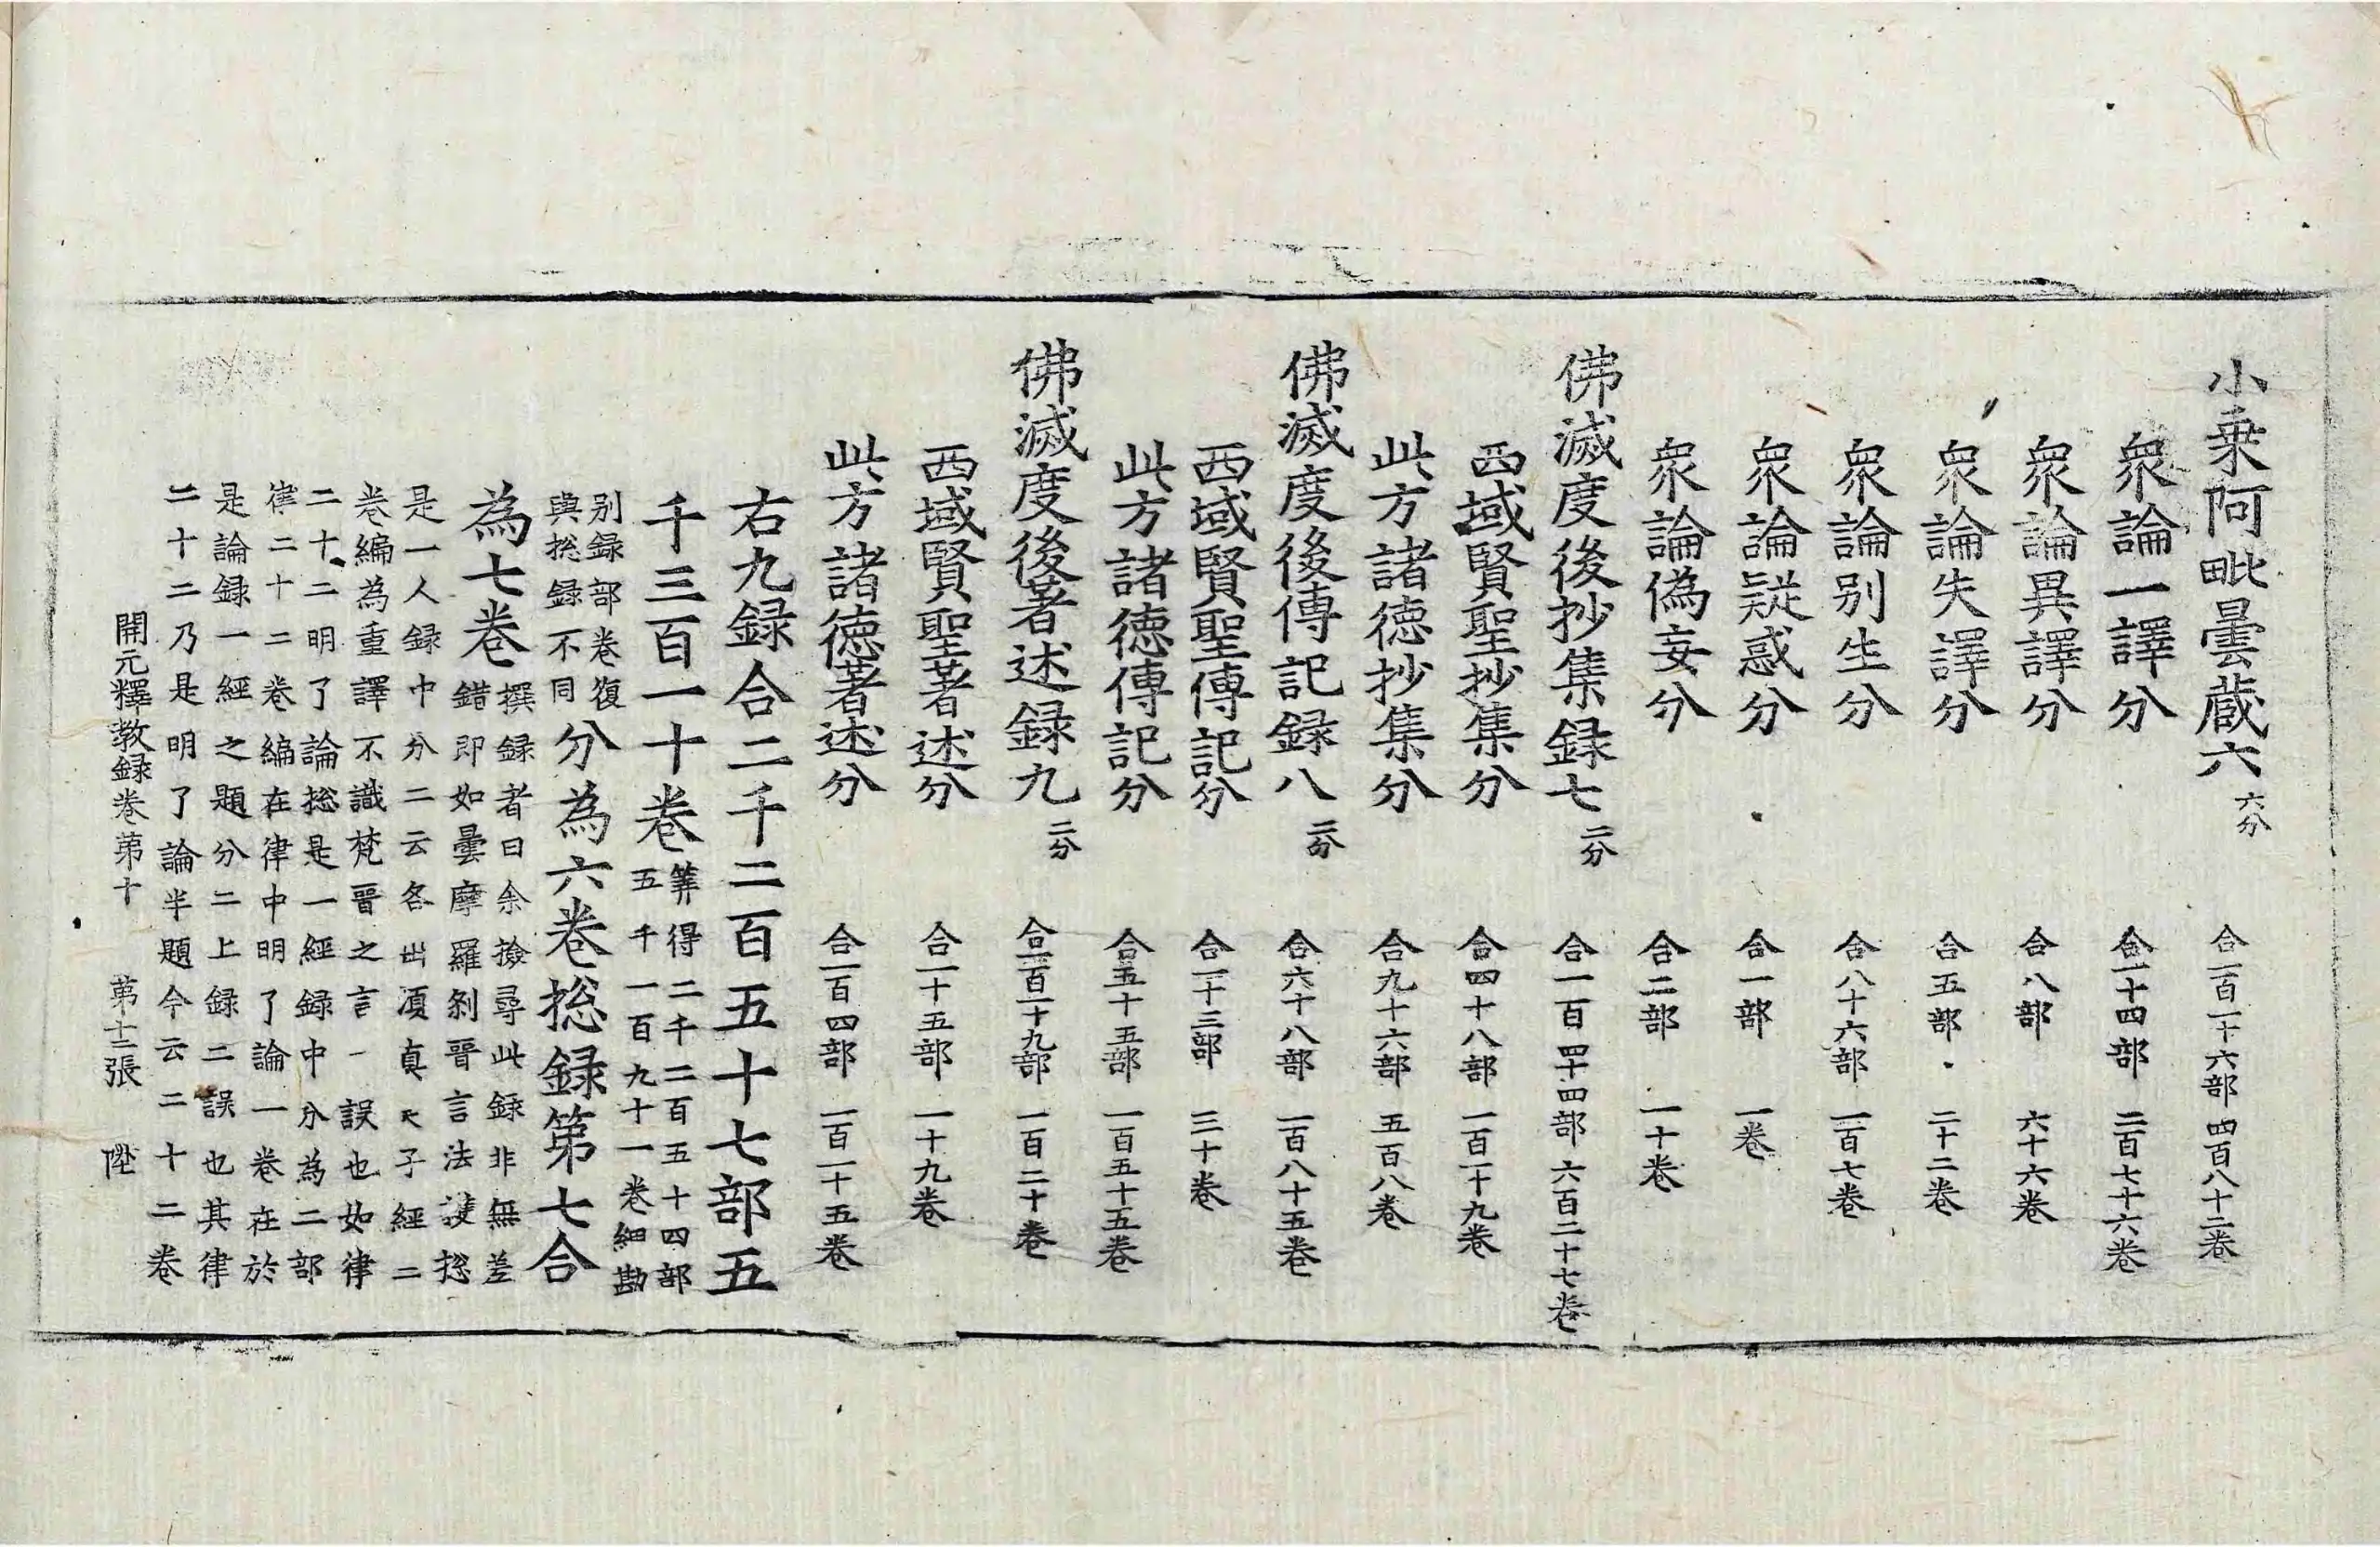 小乗阿毗曇蔵六 六分 合一百一十六部 四百八十二卷
衆論一譯分 合一十四部 二百七十六卷
衆論異譯分 合八部 六十六卷
衆論失譯分 合五部 二十二卷
衆論别生分 合八十六部 一百七卷
衆論疑惑分 合一部 一卷
衆論偽妄分 合二部 一十卷
佛滅度後抄集録七 二分 合一百四十四部 六百二十七卷
西域賢聖抄集分 合四十八部 一百一十九卷
此方諸德抄集分 合九十六部 五百八卷
佛滅度後傳記録八 二分 合六十八部 一百八十五卷
西域賢聖傳記分 合一十三部 三十卷
此方諸德傳記分 合五十五部 一百五十五卷
佛滅度後著述録九 二分 合一百一十九部 一百二十卷
西域賢聖著述分 合一十五部 一十九卷
此方諸徳著述分 合一百四部 一百一十五卷
右九録合二千二百五十七部五
千三百一十卷 筭得二千二百五十四部
五千一百九十一卷細勘
别録部卷復
與捴録不同 分為六卷捴録第七合
為七卷 撰録者曰余撿尋此録非無差
錯即如曇摩羅刹晋言法護捴
是一人録中分二云各出湏真天子經二
卷編為重譯不識梵晋之言一誤也如律
二十二明了論捴是一經録中分為二部
律二十二卷編在律中明了論一卷在於
是論録一經之題分二上録二誤也其律
二十二乃是明了論半題今云二十二卷
開元釋教録卷第十 第十二張 陞